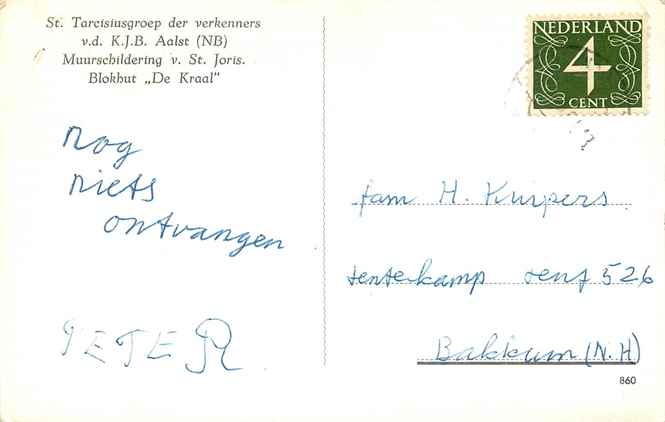 St. Tarcisiusgroep der verkenners
v.d. K.J.B. Aalst (NB)
Muurschildering v. St. Joris.
Blokhut „De Kraal"
NEDERLAND
4
CENT
nog
niets
ontvangen
PETER
fam H. Kuipers
tentenkamp tent 526
Bakkum (N.H)
860